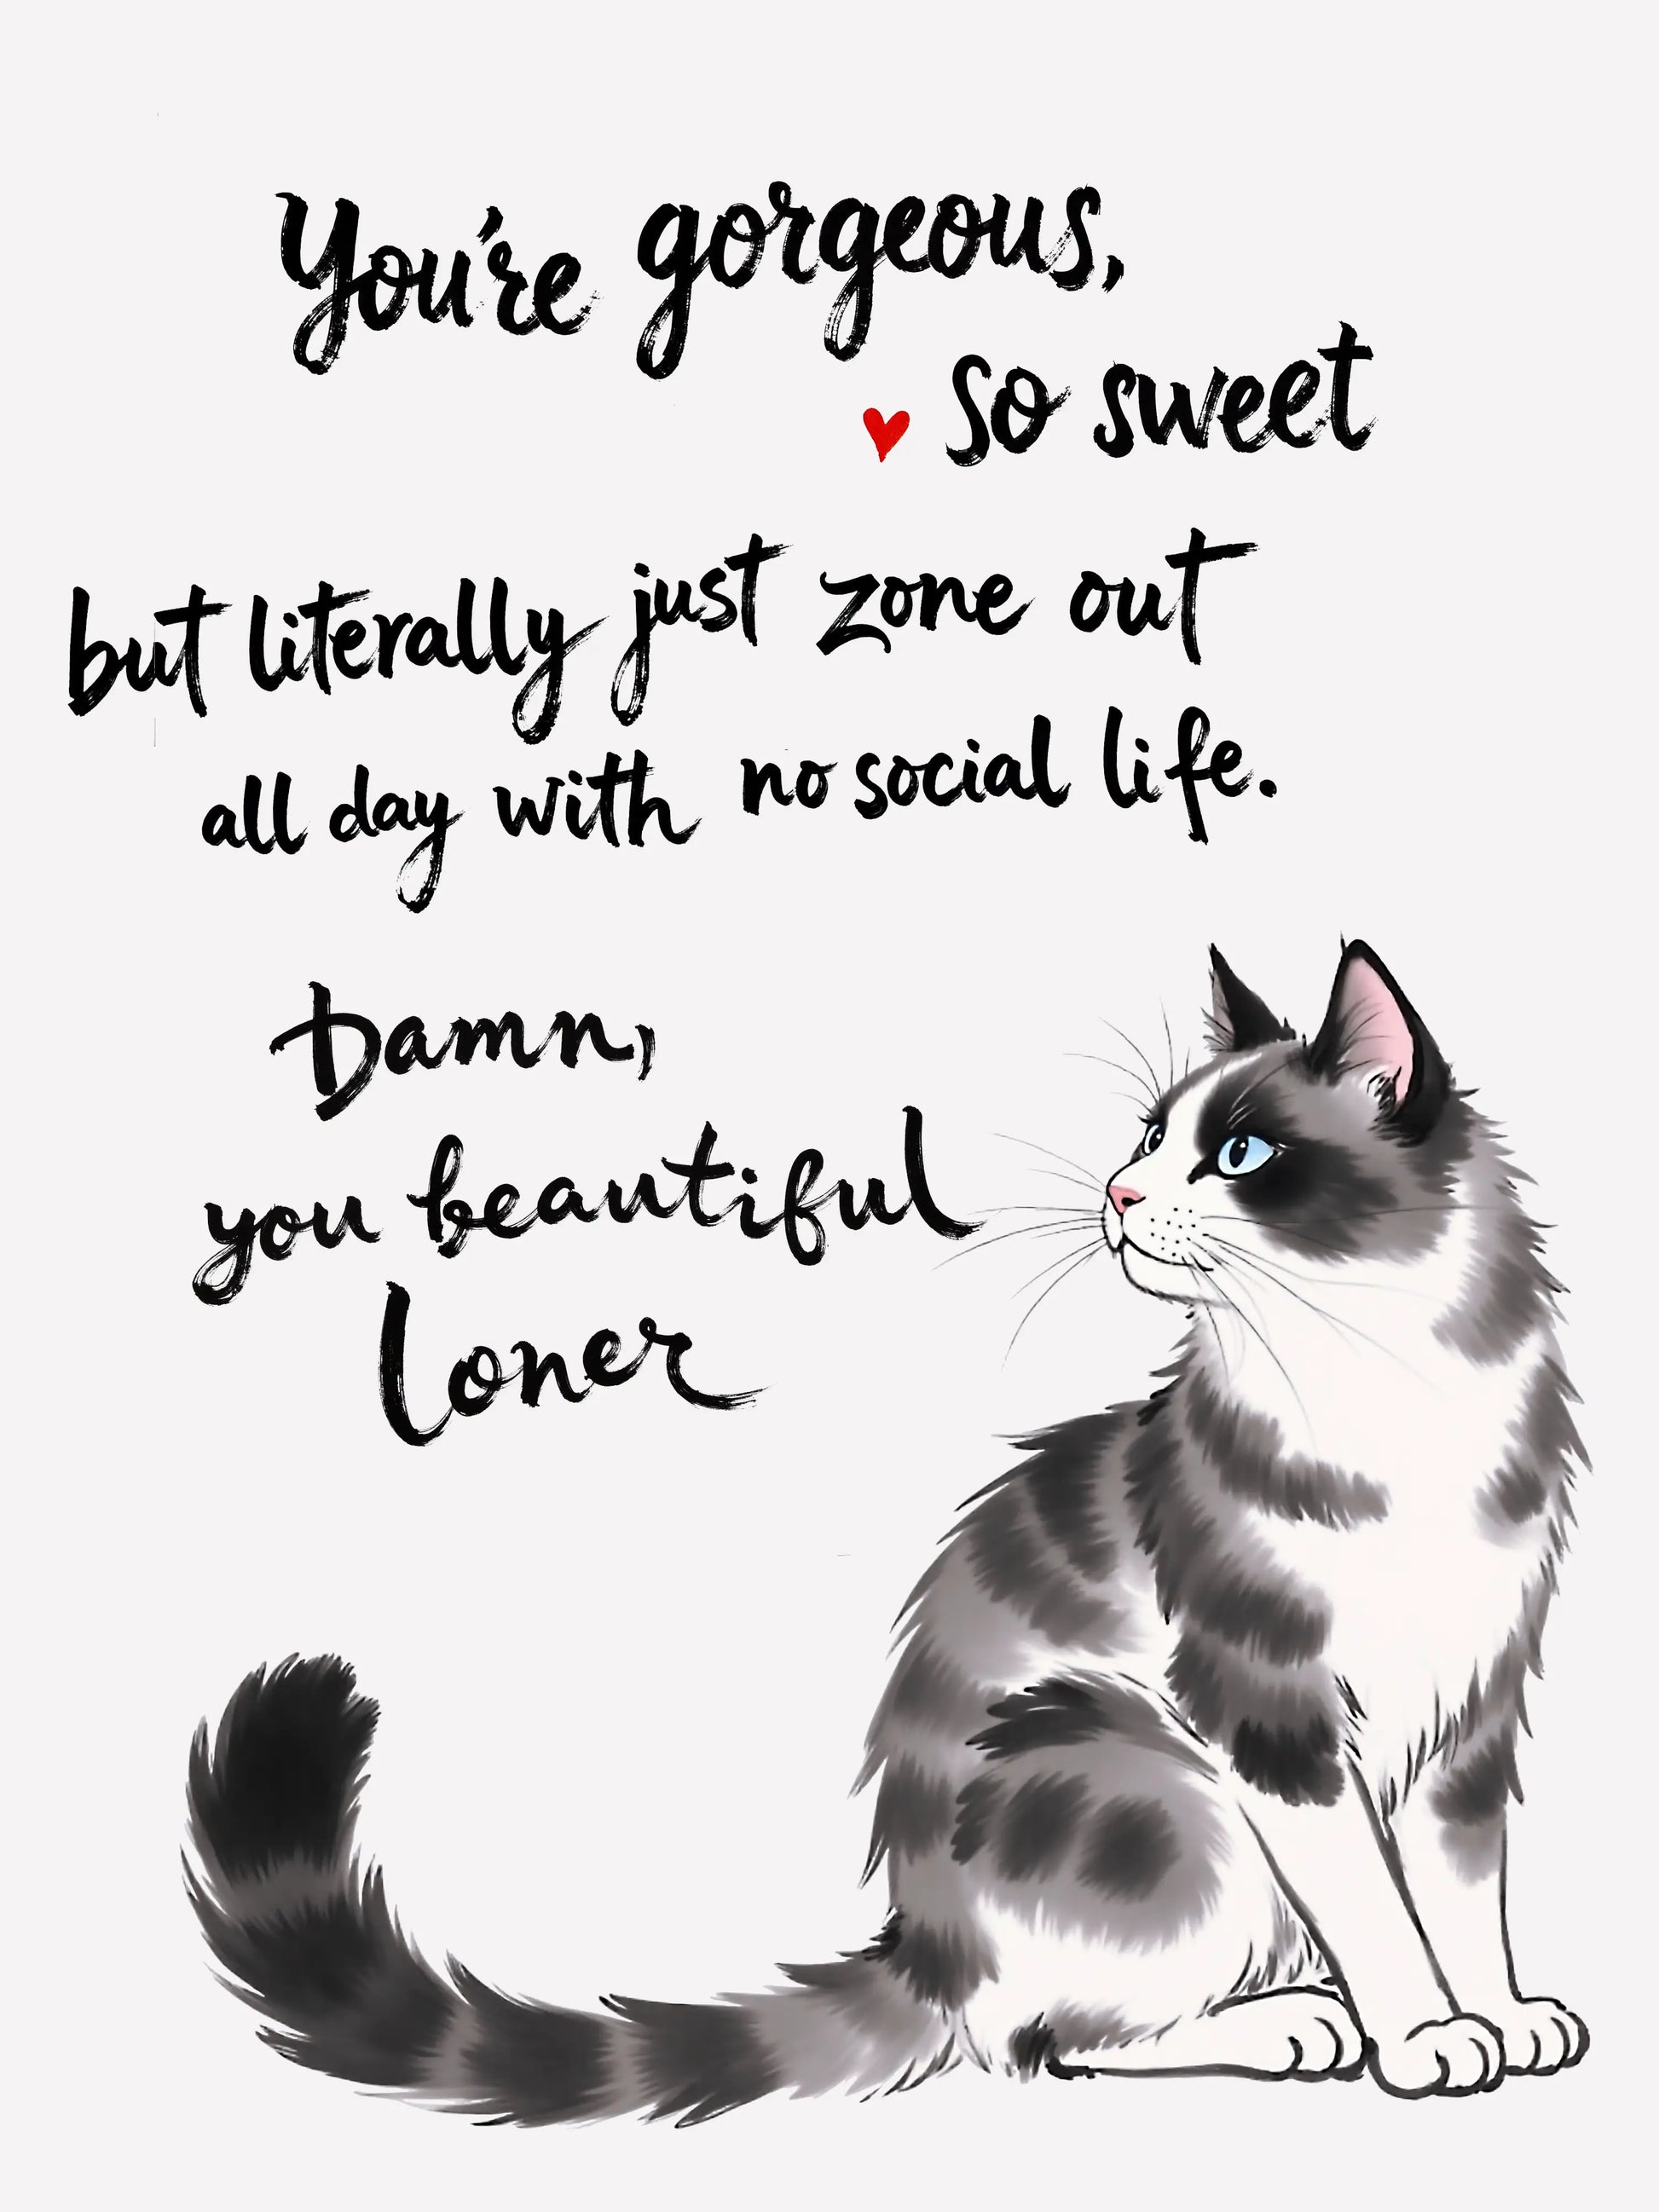 You're gorgeous,
so sweet
but literally just zone out
all day with no social life.
Damn,
you beautiful
loner